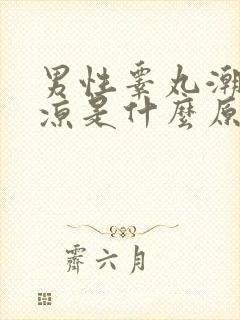 男性睾丸潮
凉是什麼原
霽六月